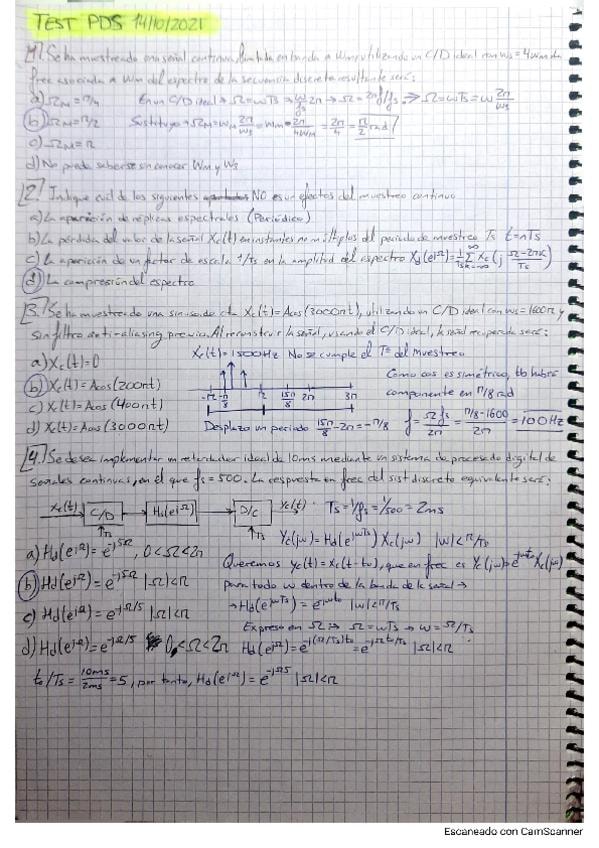 TEST PDS 14/10/2021
1. Se ha muestreado una señal continua, limitada en banda a Wm, utilizando un C/D ideal con ws = 4Wm. La
frec asociada a Wm del espectro de la secuencia discreta resultante será:
a) ΩM = π/4 En un C/D ideal → Ω = wTs → w/fs → Ω = 2πf/fs → Ω = wTs = w 2π/ws
b) ΩM = π/2 Sustituyo → ΩM = WM 2π/ws = WM · 2π/4WM = 2π/4 = π/2 rad
c) ΩM = π
d) No puede saberse sin conocer WM y Ws
2. Indique cuál de los siguientes NO es un efectos del muestreo continuo
a) La aparición de réplicas espectrales (Periódico)
b) La pérdida del valor de la señal Xc(t) en instantes no múltiplos del periodo de muestreo Ts t=nTs
c) La aparición de un factor de escala 1/Ts en la amplitud del espectro Xd(e^jΩ) = 1/Ts ∑ k=-∞ ∞ Xc(j Ω-2πk/Ts)
d) La compresión del espectro
3. Se ha muestreado una sinusoide cta Xc(t) = Acos(3000πt), utilizando un C/D ideal con ws = 1600π y
sin filtro anti-aliasing previo. Al reconstruir la señal, usando el C/D ideal, la señal recuperada será:
a) Xc(t) = 0 Xc(t) = 1500Hz No se cumple el Tª del muestreo
b) Xc(t) = Acos(200πt) Como cos es simétrico, tb habrá
c) Xc(t) = Acos(400πt) -π -π/8 π 15π/8 2π 3π componente en π/8 rad
d) Xc(t) = Acos(3000πt) Desplazo un periodo 15π/8 - 2π = -π/8 f = Ωfs/2π = π/8·1600/2π = 100Hz
4. Se desea implementar un retardador ideal de 10ms mediante un sistema de procesado digital de
señales continuas, en el que fs = 500. La respuesta en frec del sist discreto equivalente será:
xc(t) C/D Hd(e^jΩ) D/C yc(t) Ts = 1/fs = 1/500 = 2ms
Ts Ts Yc(jw) = Hd(e^jwTs) Xc(jw) |w|<π/Ts
a) Hd(e^jΩ) = e^-j5Ω, 0<Ω<2π Queremos yc(t) = xc(t-to), que en frec es Yc(jw) = e^-jwto Xc(jw)
b) Hd(e^jΩ) = e^-j5Ω |Ω|<π para todo w dentro de la banda de la señal →
c) Hd(e^jΩ) = e^-jΩ/5 |Ω|<π → Hd(e^jwTs) = e^-jwto |w|<π/Ts
Expreso en Ω → Ω = wTs → w = Ω/Ts
d) Hd(e^jΩ) = e^-jΩ/5 0<Ω<2π Hd(e^jΩ) = e^-j(Ω/Ts)to = e^-jΩto/Ts |Ω|<π
to/Ts = 10ms/2ms = 5, por tanto, Hd(e^jΩ) = e^-jΩ5 |Ω|<π
Escaneado con CamScanner